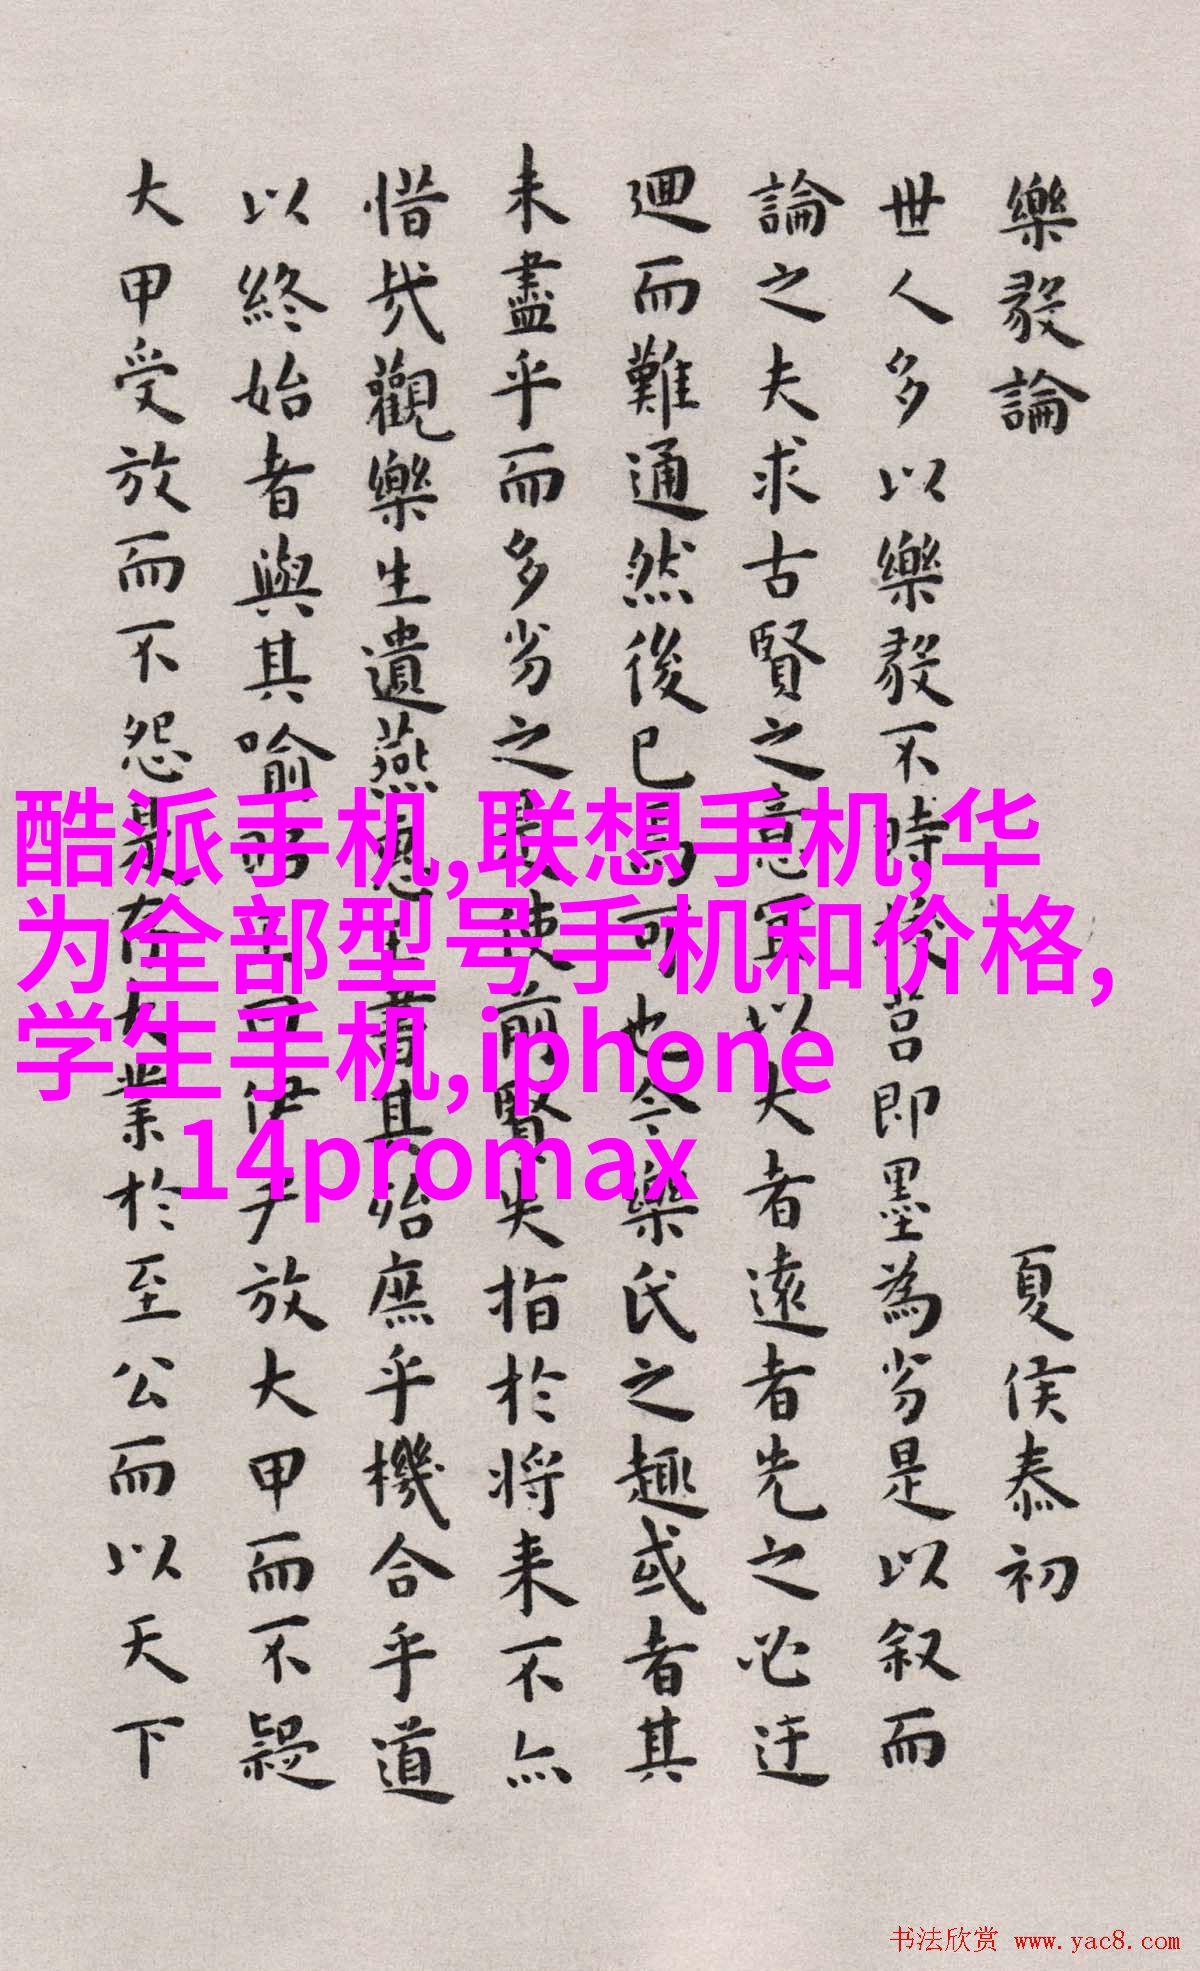 樂毅論 夏侯泰初
世人多以樂毅不時拔莒即墨為劣是以叙而
論之夫求古賢之意宜以大者遠者先之必迂
迴而難通然後已焉可也今樂氏之趣或者其
未盡乎而多劣之是使前賢失指於将来不亦
惜哉觀樂生遺燕惠王書其殆庶乎機合乎道
以終始者與其喻昭王曰伊尹放大甲而不疑
大甲受放而不怨是存大業於至公而以天下
酷派手机,联想手机,华
为全部型号手机和价格,
学生手机,iphone
14promax
书法欣赏 www.yac8.com